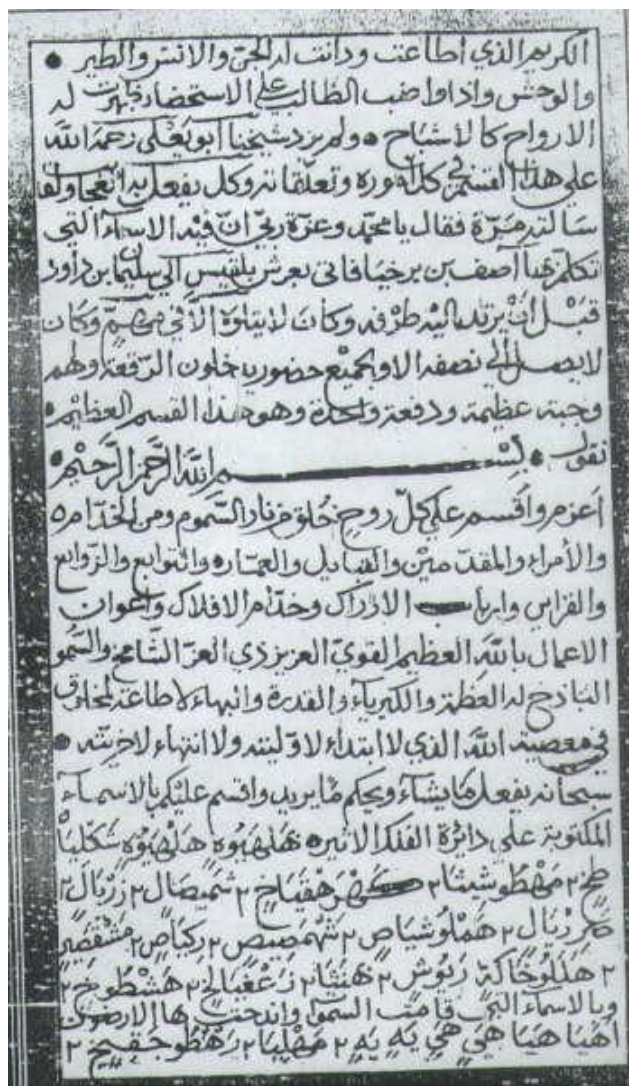 الكريم الذي اطاعت ودانت له الجن والانس والطير •
والوحش واذا واضب الطالب علي الاستحضار ظهرت له
الارواح كالاشباح • ولم يزد شيخنا ابو يعلى رحمه الله
على هذا القسم في كل اموره وتعلقاته وكل يفعل به
سالته مرة فقال يا محمد وعزة ربي ان فيه الاسماء التي
تكلم بها آصف بن برخيا فاتى بعرش بلقيس الي سليمان بن داود
قبل ان يرتد اليه طرفه وكان لا يتلوه الا في مهم وكان
لا يصل الي نصفه الا والجميع حضور ياخلون الرقعة ولهم
وجبة عظيمة ودفعة واحدة وهو هذا القسم العظيم •
تقول • بسم الله الرحمن الرحيم •
اعزم واقسم علي كل روح خلق من نار السموم ومن الخدام •
والأمراء والمقدمين والقبايل والعمار • والتوابع والزوابع
وارباب الادراك وخدام الافلاك واعوان
الاعمال بالله العظيم القوي العزيز ذي العز الشامخ والسمو
الباذخ له العظمة والكبرياء والقدرة والبهاء لا طاعة لمخلوق
في معصية الله الذي لا ابتداء لاوليته ولا انتهاء لاخريته •
سبحانه يفعل ما يشاء ويحكم ما يريد واقسم عليكم بالاسماء
المكتوبة علي دائرة الفلك الاثير • هلهيوه هلهيوه
٢ مهطوشيثا ٢ ٢ شميصال ٢ زريال ٢
٢ هملوشياص ٢ شهمصيص ٢ ركياص ٢
٢ ريوش ٢ هنثا ٢ زعغيالخ ٢ هشطوخ ٢
وبالاسماء التي قامت السموات واندحت بها الارضون
اهيا هيا هي هي يه يه ٢ مهليا ٢ ٢